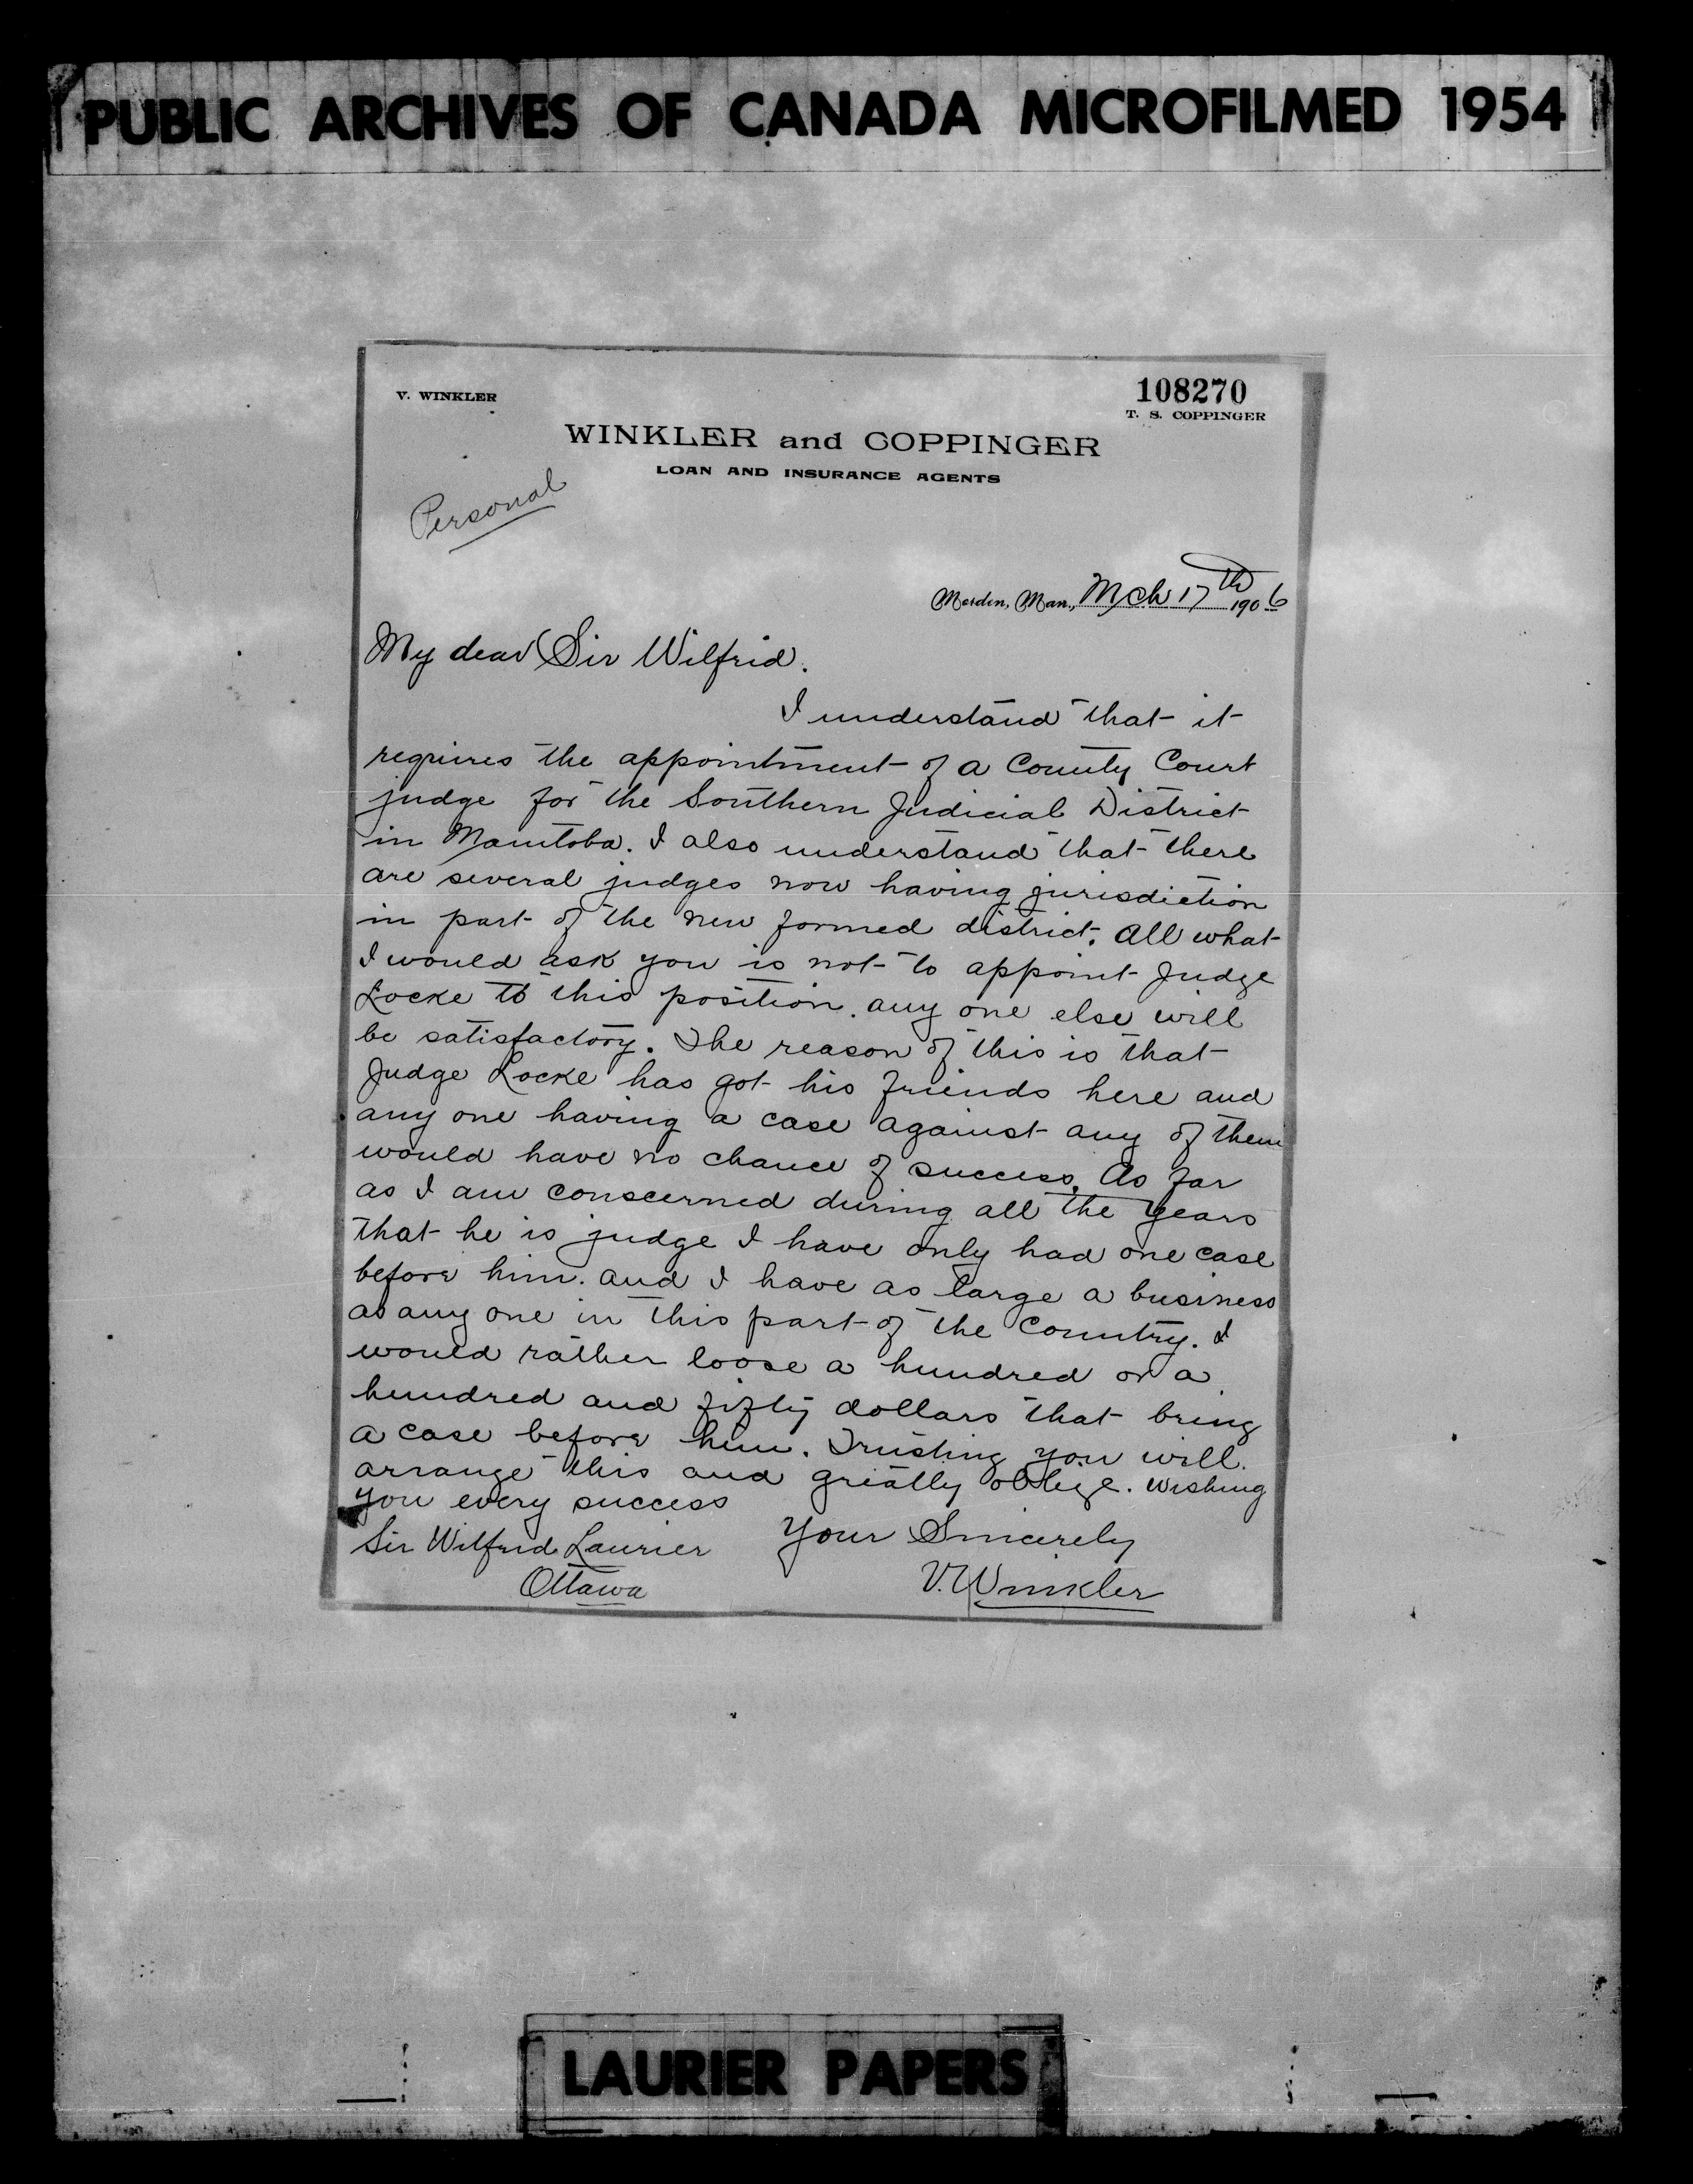 PUBLIC ARCHIVES OF CANADA MICROFILMED 1954
V. WINKLER
108270
T. S. COPPINGER
WINKLER and COPPINGER
LOAN AND INSURANCE AGENTS
Personal
Morden, Man., Mch 17th 1906
My dear Sir Wilfrid.
I understand that it
requires the appointment of a County Court
judge for the Southern Judicial District
in Manitoba. I also understand that there
are several judges now having jurisdiction
in part of the new formed district. All what
I would ask you is not to appoint Judge
Locke to this position. any one else will
be satisfactory. The reason of this is that
Judge Locke has got his friends here and
any one having a case against any of them
would have no chance of success. As far
as I am conscerned during all the years
that he is judge I have only had one case
before him. and I have as large a business
as any one in this part of the Country. I
would rather loose a hundred or a
hundred and fifty dollars that bring
a case before him. Trusting you will
arrange this and greatly oblige. Wishing
you every success
Your Sincerely
Sir Wilfrid Laurier
V. Winkler
Ottawa
LAURIER PAPERS